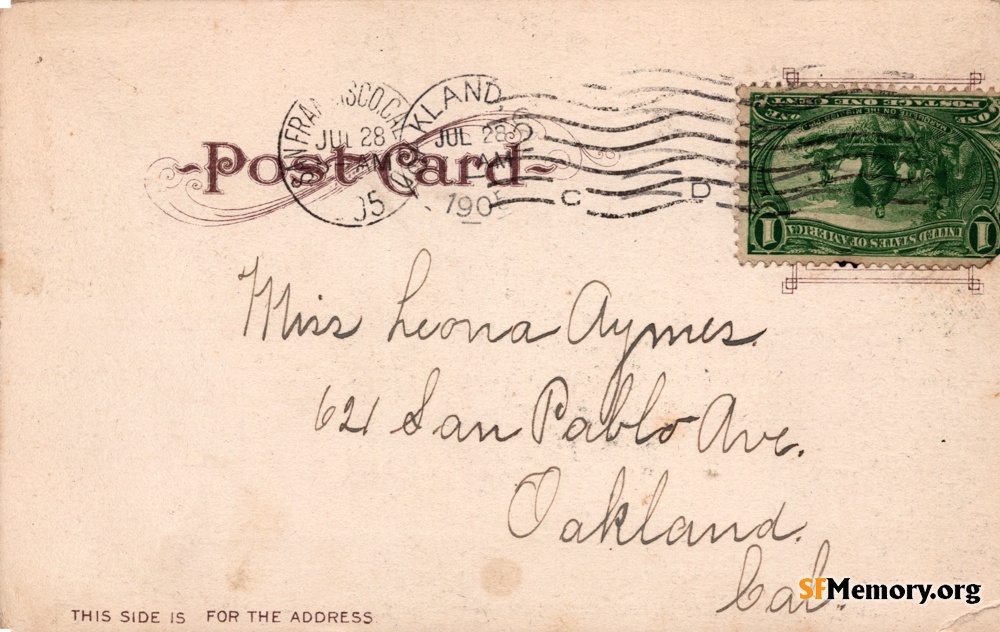 Post Card
SAN FRANCISCO, CAL.
JUL 28
AM
05
OAKLAND,
JUL 28
AM
1905
C D
POSTAGE ONE CENT
MARQUETTE ON THE MISSISSIPPI
UNITED STATES OF AMERICA
1 1
Miss Leona Aymes.
621 San Pablo Ave.
Oakland.
Cal.
THIS SIDE IS FOR THE ADDRESS.
SFMemory.org